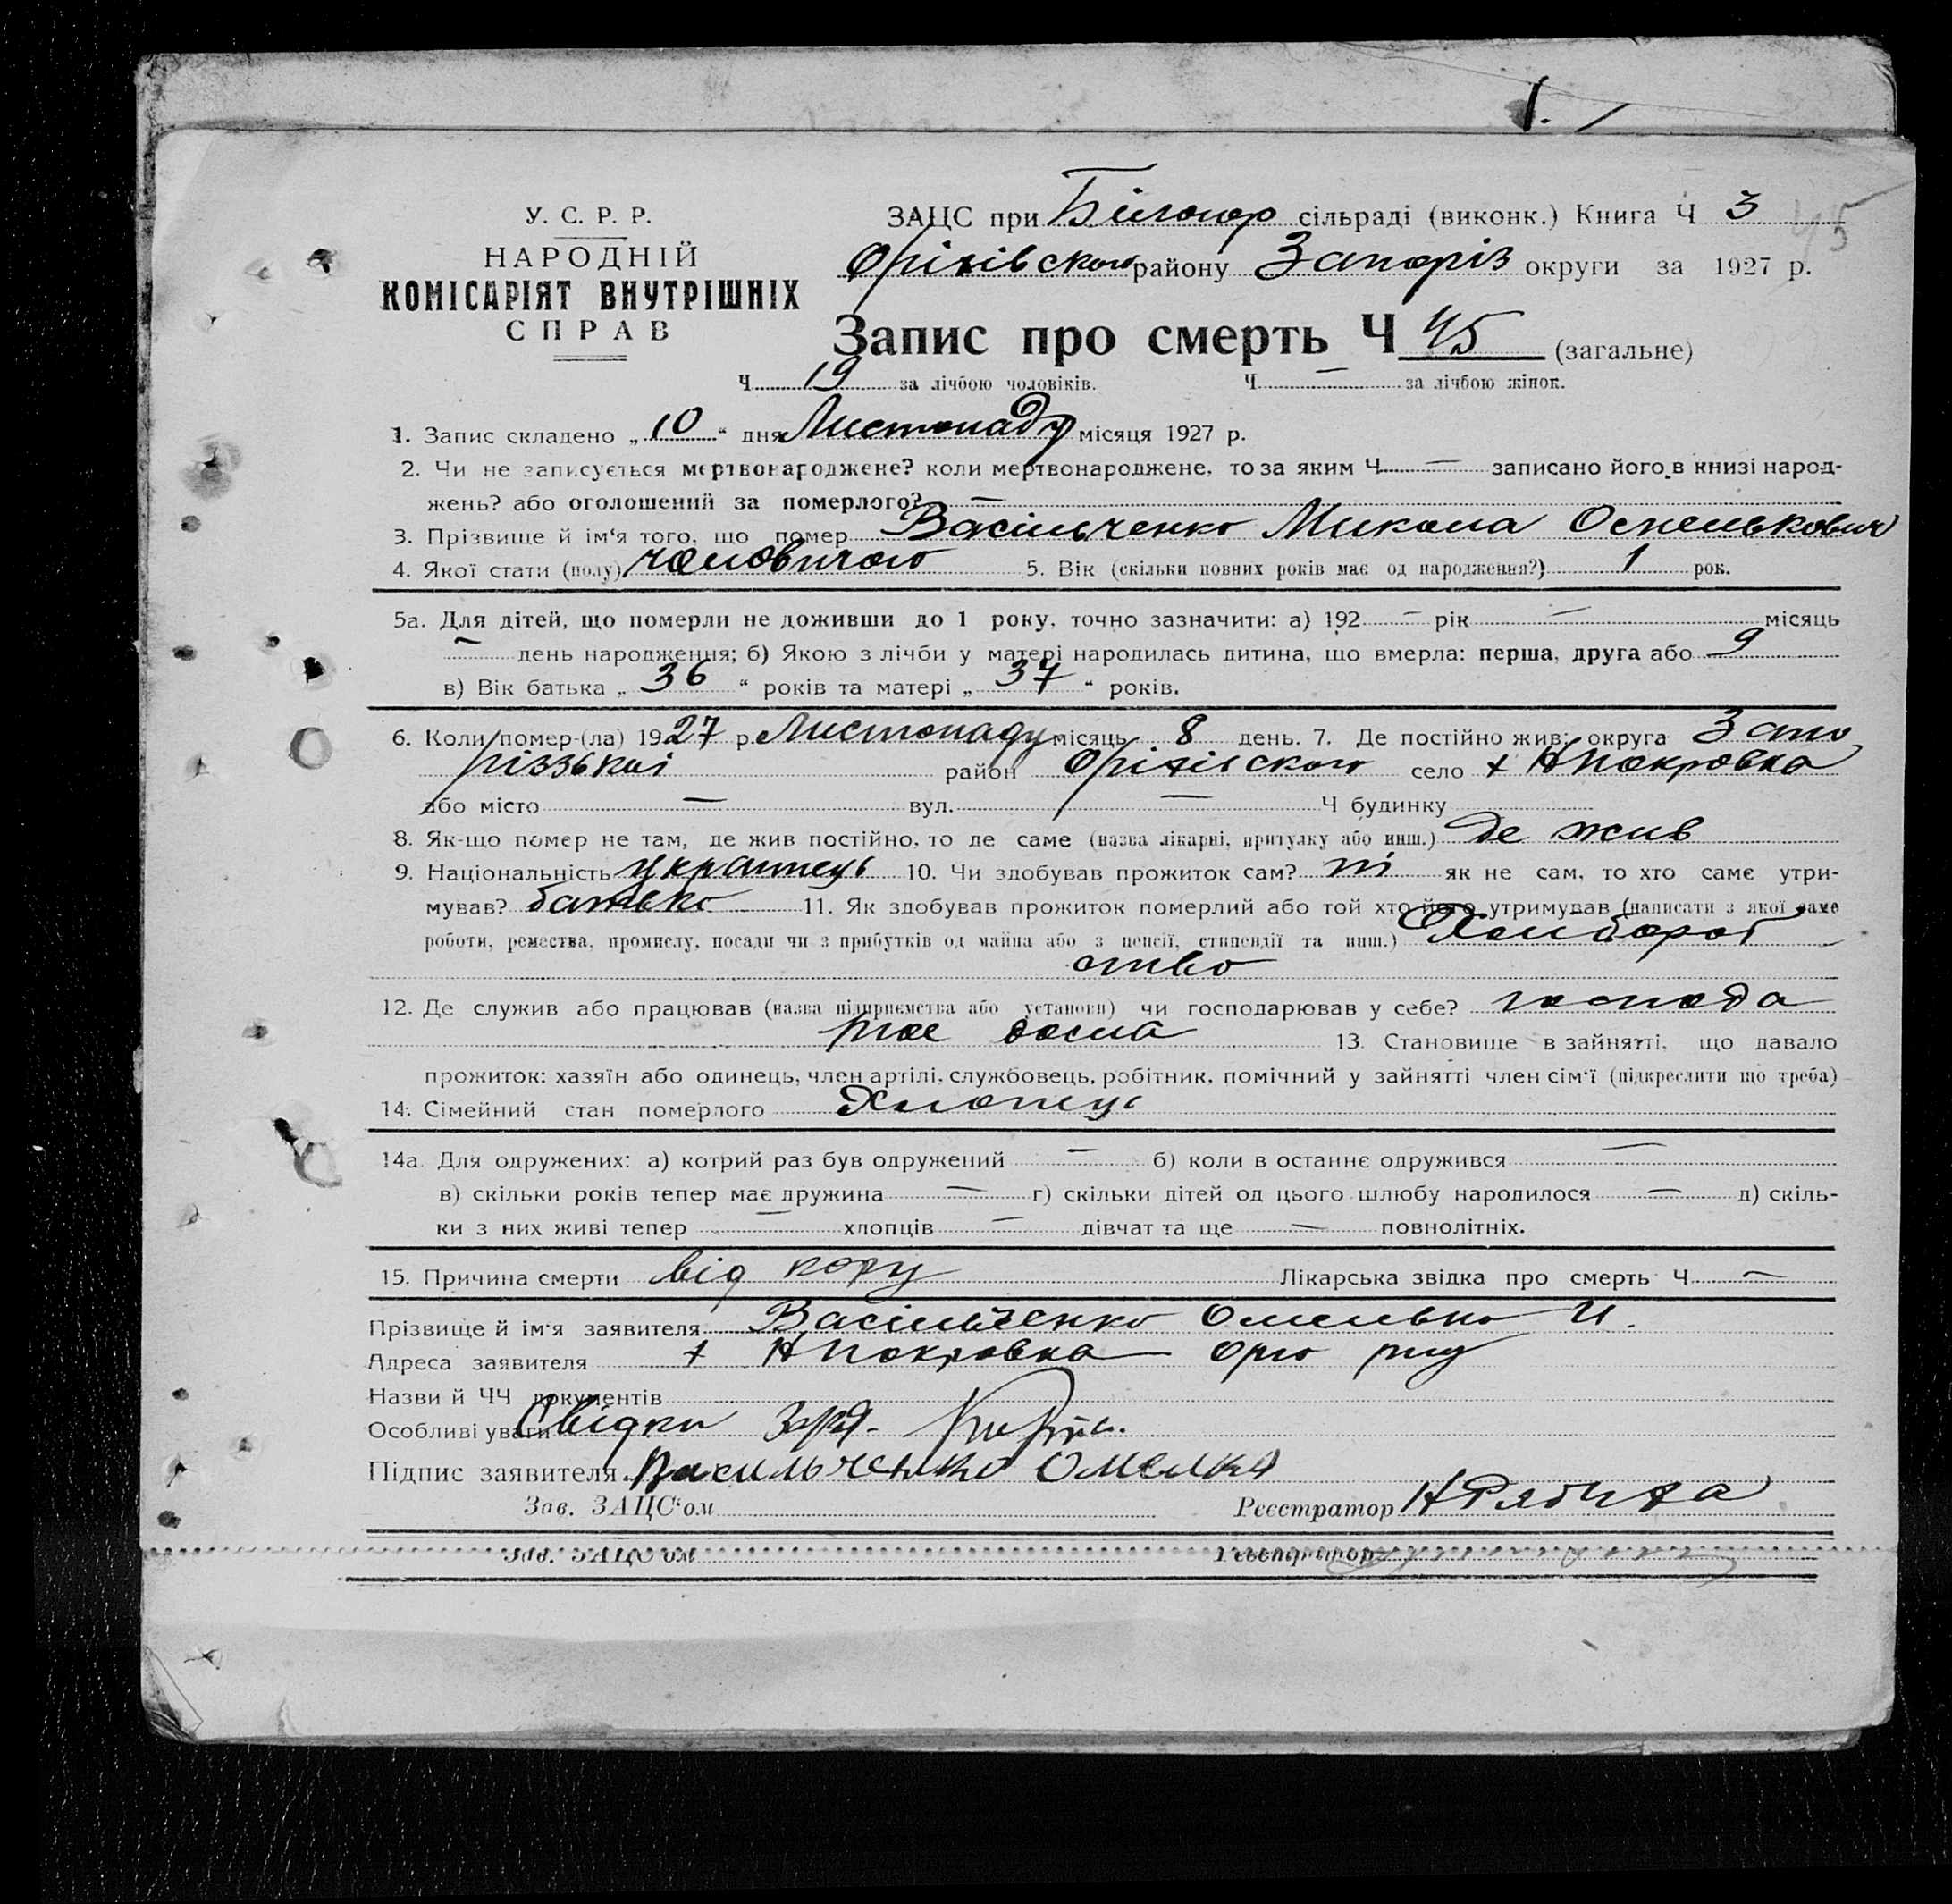 У. С. Р. Р.
НАРОДНІЙ
КОМІСАРІЯТ ВНУТРІШНІХ
СПРАВ
ЗАЦС при Білогор сільраді (виконк.) Книга Ч 3
45
Оріхівского району Запоріз округи за 1927 р.
Запис про смерть Ч 45 (загальне)
Ч 19 за лічбою чоловіків. Ч — за лічбою жінок.
1. Запис складено „10“ дня Листопаду місяця 1927 р.
2. Чи не записується мертвонароджене? коли мертвонароджене, то за яким Ч — записано його в книзі народ-
жень? або оголошений за померлого? —
3. Прізвище й ім'я того, що помер Васільченко Микола Омелькович
4. Якої стати (полу) чоловичого 5. Вік (скільки повних років має од народження?) 1 рок.
5а. Для дітей, що померли не доживши до 1 року, точно зазначити: а) 192 — рік — місяць
— день народження; б) Якою з лічби у матері народилась дитина, що вмерла: перша, друга або 9
в) Вік батька „ 36 “ років та матері „ 37 “ років.
6. Коли помер-(ла) 1927 р. Листопаду місяць 8 день. 7. Де постійно жив: округа Запо
різзькоі район Оріхівского село х НПокровка
або місто — вул. — Ч будинку
8. Як-що помер не там, де жив постійно, то де саме (назва лікарні, притулку або инш.) де жив
9. Національність українець 10. Чи здобував прожиток сам? ні як не сам, то хто саме утри-
мував? батько 11. Як здобував прожиток померлий або той хто його утримував (написати з якої саме
роботи, ремества, промислу, посади чи з прибутків од майна або з пенсії, стипендії та инш.) Хлібороб
ство
12. Де служив або працював (назва підприємства або установи) чи господарював у себе? господа
рює дома 13. Становище в зайнятті, що давало
прожиток: хазяїн або одинець, член артілі, службовець, робітник, помічний у зайнятті член сім'ї (підкреслити що треба)
14. Сімейний стан померлого Хлопець
14а. Для одружених: а) котрий раз був одружений — б) коли в останнє одружився —
в) скільки років тепер має дружина — г) скільки дітей од цього шлюбу народилося — д) скіль-
ки з них живі тепер — хлопців — дівчат та ще — повнолітніх.
15. Причина смерти від кору Лікарська звідка про смерть Ч —
Прізвище й ім'я заявителя Васільченко Омелько И.
Адреса заявителя х НПокровка Оріо рну
Назви й ЧЧ документів
Особливі уваги Свідки
Підпис заявителя Васильченко Омелко
Зав. ЗАЦС'ом Реєстратор НРябиха
Зав. ЗАЦС'ом Реєстратор